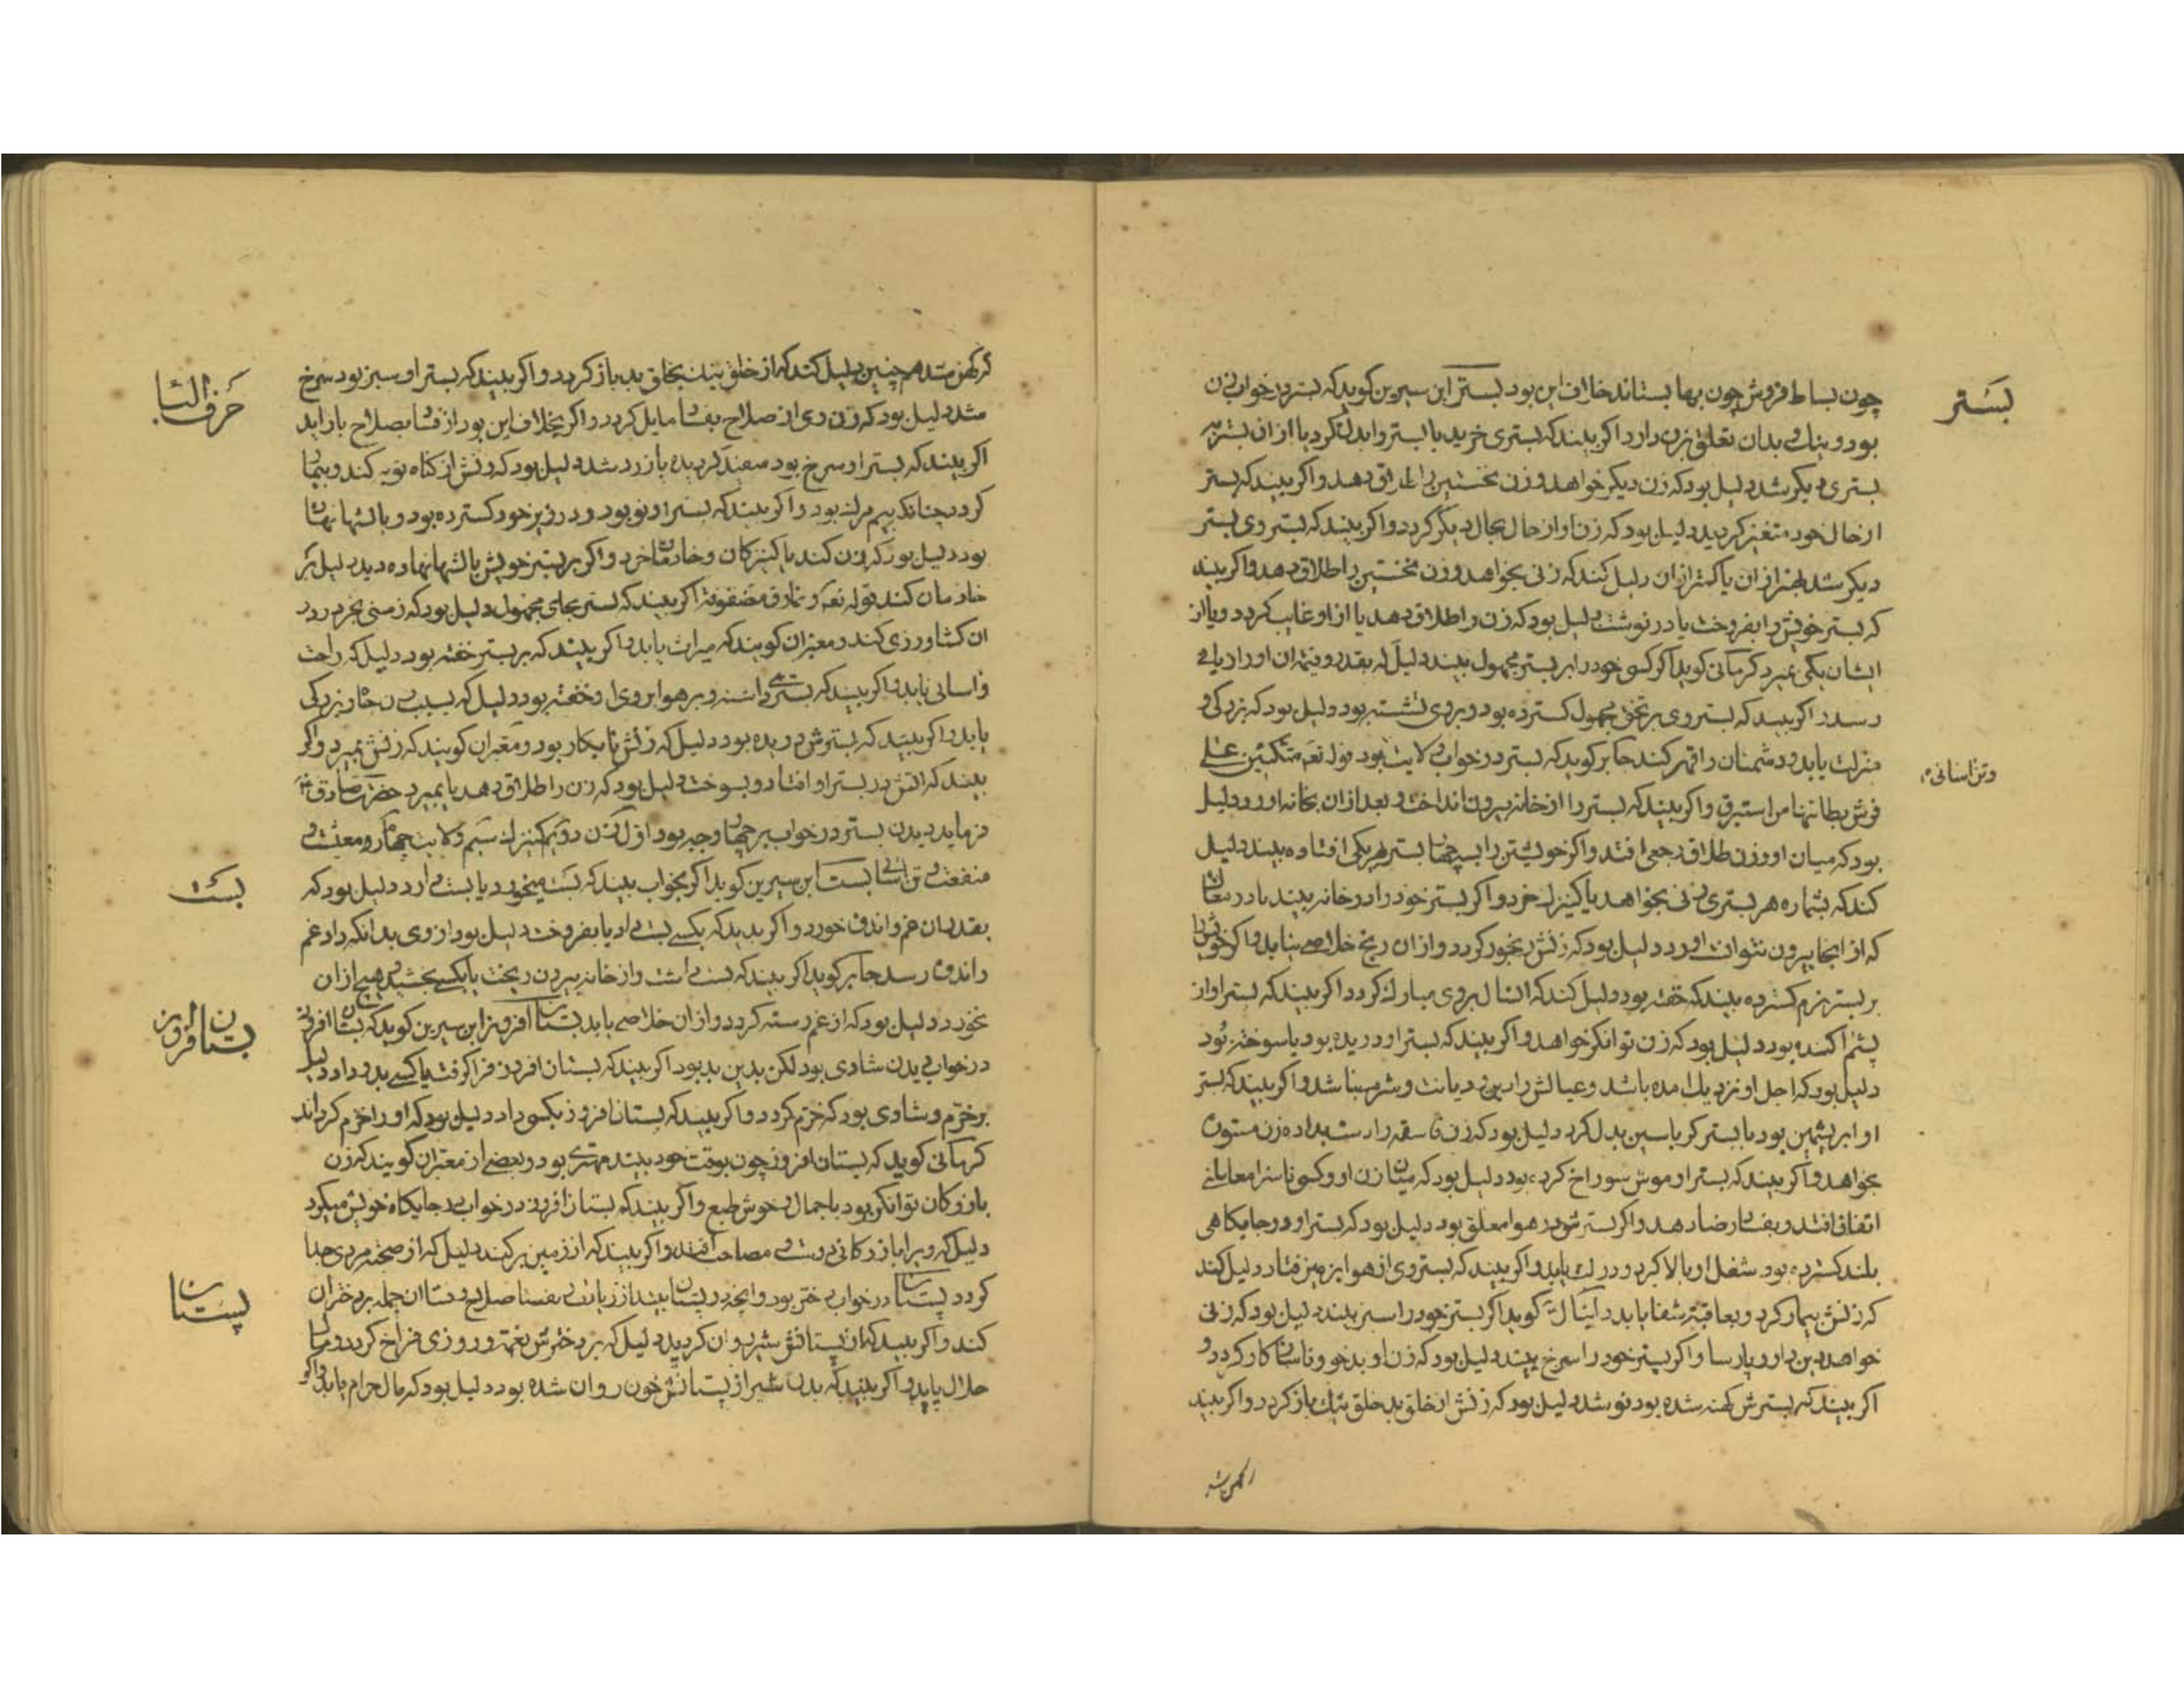 بستر
چون بساط فروش چون بها بستاند خلاف این بود بستر ابن سیرین کوید که بستر در خواب زن
بود و نیک و بدان تعلق بزن دارد اکر بیند که بستری خرید یا بستر او بدل کردید یا از ان بستر به
بستری دیکر شد دلیل بود که زن دیکر خواهد و زن نخستین را طلاق دهد و اکر بیند که بستر
از حال خود متغیر کردید دلیل بود که زن او از حال بحال دیکر کردد و اکر بیند که بستر وی بستر
دیکر شد بهتر از ان یا کمتر از ان دلیل کند که زنی بخواهد و زن نخستین را طلاق دهد و اکر بیند
که بستر خویش را بفروخت یا در نوشت دلیل بود که زن را طلاق دهد یا از او غایب کردد و یا از
ایشان یکی بمیرد کرمانی کوید اکر کسی خود را بر بستر مجهول بیند دلیل که بقدر و قیمت ان او را
رسد و اکر بیند که بستر وی بر تختی مجهول کسترده بود و بر وی نشسته بود دلیل بود که بزرکی و
منزلت یابد و دشمنان را قهر کند جابر کوید که بستر در خواب ولایت بود قوله تعه متکئین علی
وتن اسانی
فرش بطائنها من استبرق و اکر بیند که بستر را از خانه بیرون انداخت و بعد ازان بخانه اورد دلیل
بود که میان او و زن طلاق رجعی افتد و اکر خویشتن را بسه چهار بستر هر یکی افتاده بیند دلیل
کند که بشماره هر بستری زنی بخواهد یا کنیزک خرد و اکر بستر خود را در خانه بیند یا در
که از انجا بیرون نتوان اورد دلیل بود که زنش رنجور کردد و از ان رنج خلاصی نیابد و اکر خویش را
بر بستر نرم کسترده بیند که خفته بود دلیل کند که انسال بر وی مبارک کردد اکر بیند که بستر او از
پشم اکنده بود دلیل بود که زن توانکر خواهد و اکر بیند که بستر او دریده بود یا سوخته بود
دلیل بود که اجل او نزدیک امده باشد و عیالش را دین و دیانت و شرم نباشد و اکر بیند که بستر
او ابریشمین بود با بستر کرباسین بدل کرد دلیل بود که زن فاسقه را دست بداد و زن مستور
بخواهد و اکر بیند که بستر او موش سوراخ کرده بود دلیل بود که میان زن او و کسی ناسزا معاملتی
اتفاق افتد و بفساد رضا دهد و اکر بسترش در هوا معلق بود دلیل بود که بستر او در جایکاهی
بلند کسترده بود شغل او بالا کیرد و بزرکی یابد و اکر بیند که بستر وی از هوا بر زمین فتاد دلیل کند
که زنش بیمار کردد و بعاقبة شفا یابد دانیال کوید اکر بستر خود را سبز بیند دلیل بود که زنی
خواهد دین دار و پارسا و اکر بستر خود را سرخ بیند دلیل بود که زن او بدخو و ناسازکار کردد و
اکر بیند که بسترش کهنه شده بود نو شد دلیل بود که زنش از خلق بد بخلق نیک باز کردد و اکر بیند
کهن شد
حرف التا
که کهن شد هم چنین دلیل کند که از خلق نیک بخلق بد باز کردد و اکر بیند که بستر او سبز بود سرخ
شد دلیل بود که زن وی از صلاح بفساد مایل کردد و اکر بخلاف این بود از فساد بصلاح باز اید
اکر بیند که بستر او سرخ بود سفید کردیده یا زرد شد دلیل بود که زنش از کناه توبه کند و بیمار
کردد چنانکه بیم مرک بود و اکر بیند که بستر او نو بود و در زیر خود کسترده بود و بالشها نهاده
بود دلیل بود که زن کند یا کنیزکان و خادمان خرد و اکر بر بستر خویش بالشها نهاده دید دلیل بر
خادمان کند قوله تعه و نمارق مصفوفة اکر بیند که بستر بجای مجهول دلیل بود که زمینی بخرد و در
ان کشاورزی کند و معبران کویند که میراث یابد و اکر بیند که بر بستر خفته بود دلیل که راحت
و اسانی یابد و اکر بیند که بستر داشته و بر هوا بر وی خفته بود دلیل که بسبب زن جاه و بزرکی
یابد و اکر بیند که بسترش دریده بود دلیل که زنش نابکار بود و معبران کویند که زنش بمیرد و اکر
بیند که اتش در بستر او افتاد و بسوخت دلیل بود که زن را طلاق دهد یا بمیرد حضرت صادق
فرماید دیدن بستر در خواب بر چهار وجه بود اول زن دویم کنیزک سیم ولایت چهارم معیشت و
بست
منفعت و تن اسانی بست ابن سیرین کوید اکر بخواب بیند که بست میخورد یا بست دارد دلیل بود که
بقدر ان غم و اندوه خورد و اکر بیند که بکسی بست داد یا بفروخت دلیل بود از وی بدانکه دارد غم
و اندوه رسد جابر کوید اکر بیند که بست داشت و از خانه بیرون ریخت یا بکسی بخشید و هیچ ازان
بستان افروز
نخورد دلیل بود که از غم رسته کردد و ازان خلاصی یابد بستان افروز ابن سیرین کوید که بستان افروز
در خواب دیدن شادی بود لکن بدین بد بود اکر بیند که بستان افروز فرا کرفت یا کسی بدو داد دلیل
بر خرم و شادی بود که خرم کردد و اکر بیند که بستان افروز بکسی داد دلیل بود که او را خرم کرداند
کرمانی کوید که بستان افروز چون بوقت خود بیند مهتری بود و بعضی از معبران کویند که زن
بازرکان توانکر بود با جمال و خوش طبع و اکر بیند که بستان افروز در خواب در جایکاه خویش میکرد
دلیل که ویرا با زرکانی دوستی و مصاحبت افتد و اکر بیند که از زمین بر کند دلیل که از صحبت مردی جدا
پستان
کردد پستان در خواب دختر بود و انچه در پستان بیند از زیادت و نقصان صلاح و فساد ان جمله بر دختران
کند و اکر بیند که از پستانش شیر روان کردید دلیل که بر دخترش نعمة و روزی فراخ کردد و مال
حلال یابد و اکر بیند که بدل شیر از پستانش خون روان شده بود دلیل بود که مال حرام یابد و اکر